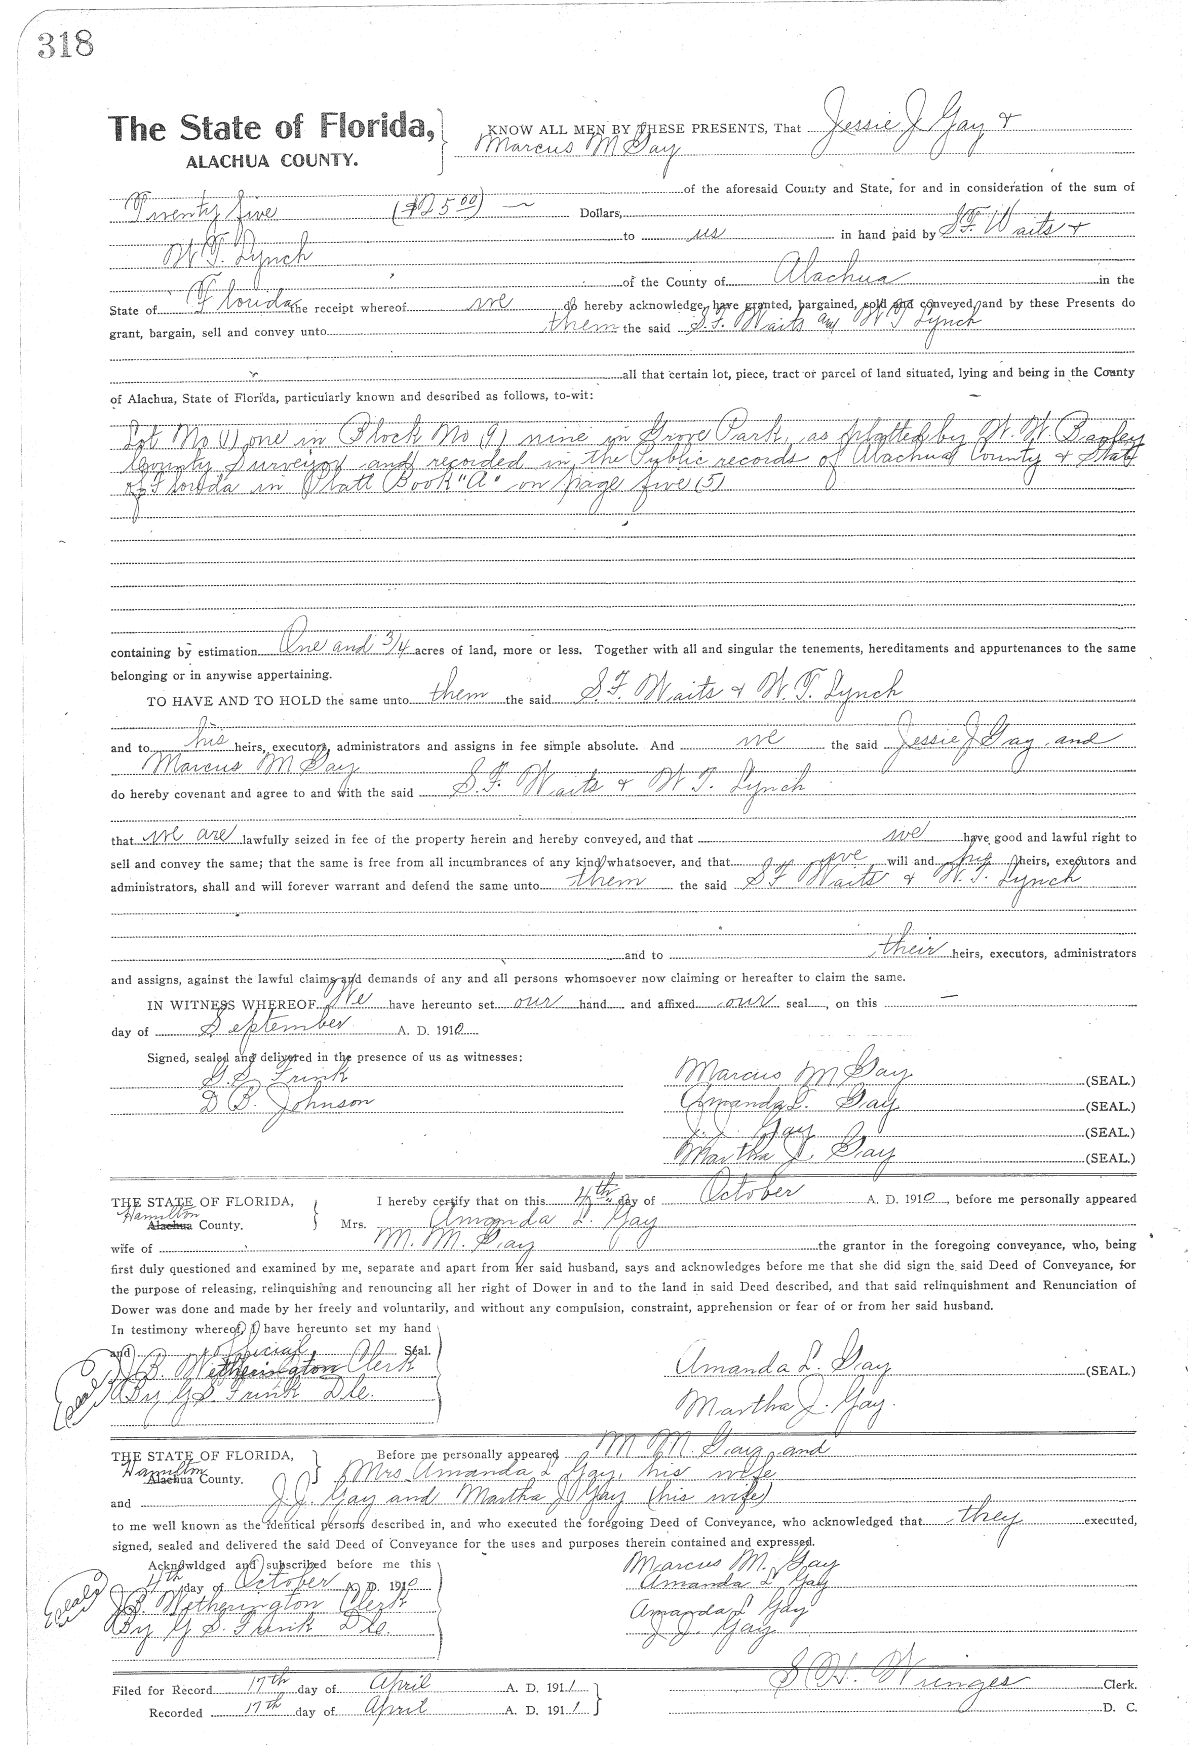 318
The State of Florida, KNOW ALL MEN BY THESE PRESENTS, That Jessie J Gay &
ALACHUA COUNTY. Marcus M Gay
of the aforesaid County and State, for and in consideration of the sum of
Twenty five ($25 00) Dollars,
to us in hand paid by S.F. Waits &
W T. Lynch
of the County of Alachua in the
State of Florida the receipt whereof we do hereby acknowledge, have granted, bargained, sold and conveyed, and by these Presents do
grant, bargain, sell and convey unto them the said S.F. Waits and W T Lynch
all that certain lot, piece, tract or parcel of land situated, lying and being in the County
of Alachua, State of Florida, particularly known and described as follows, to-wit:
Lot No (1) one in Block No (9) nine in Grove Park, as platted by W. W
County Surveyor and recorded in the Public records of Alachua County & State
of Florida in Platt Book "A" on page five (5)
containing by estimation One and 3/4 acres of land, more or less. Together with all and singular the tenements, hereditaments and appurtenances to the same
belonging or in anywise appertaining.
TO HAVE AND TO HOLD the same unto them the said S.F. Waits & W. T. Lynch
and to his heirs, executors, administrators and assigns in fee simple absolute. And we the said Jessie J Gay and
Marcus M Gay
do hereby covenant and agree to and with the said S.F. Waits & W T. Lynch
that we are lawfully seized in fee of the property herein and hereby conveyed, and that we have good and lawful right to
sell and convey the same; that the same is free from all incumbrances of any kind whatsoever, and that we will and heirs, executors and
administrators, shall and will forever warrant and defend the same unto them the said S F Waits & W. T. Lynch
and to their heirs, executors, administrators
and assigns, against the lawful claims and demands of any and all persons whomsoever now claiming or hereafter to claim the same.
IN WITNESS WHEREOF We have hereunto set our hand and affixed our seal, on this —
day of September A. D. 1910
Signed, sealed and delivered in the presence of us as witnesses:
G.S. Frink
D B. Johnson
Marcus M Gay (SEAL.)
Amanda L. Gay (SEAL.)
J. J. Gay (SEAL.)
Martha J. Gay (SEAL.)
THE STATE OF FLORIDA, I hereby certify that on this 4th day of October A. D. 1910, before me personally appeared
Hamilton
Alachua County. Mrs. Amanda L. Gay
wife of M. M. Gay the grantor in the foregoing conveyance, who, being
first duly questioned and examined by me, separate and apart from her said husband, says and acknowledges before me that she did sign the said Deed of Conveyance, for
the purpose of releasing, relinquishing and renouncing all her right of Dower in and to the land in said Deed described, and that said relinquishment and Renunciation of
Dower was done and made by her freely and voluntarily, and without any compulsion, constraint, apprehension or fear of or from her said husband.
In testimony whereof, I have hereunto set my hand
and official Seal.
J.B. Wetherington Clerk
(Seal) By G S. Frink D.C.
Amanda L. Gay (SEAL.)
Martha J. Gay.
THE STATE OF FLORIDA, Before me personally appeared M M. Gay and
Hamilton
Alachua County. Mrs. Amanda L Gay, his wife
and J.J. Gay and Martha J Gay (his wife)
to me well known as the identical persons described in, and who executed the foregoing Deed of Conveyance, who acknowledged that they executed,
signed, sealed and delivered the said Deed of Conveyance for the uses and purposes therein contained and expressed.
Acknowldged and subscribed before me this
4th day of October A. D. 1910
(Seal) J.B. Wetherington Clerk
By G S. Frink D.C.
Marcus M. Gay
Amanda L Gay
Amanda L Gay
J J. Gay
Filed for Record 17th day of April A. D. 1911 S H. Wienges Clerk.
Recorded 17th day of April A. D. 1911 D. C.